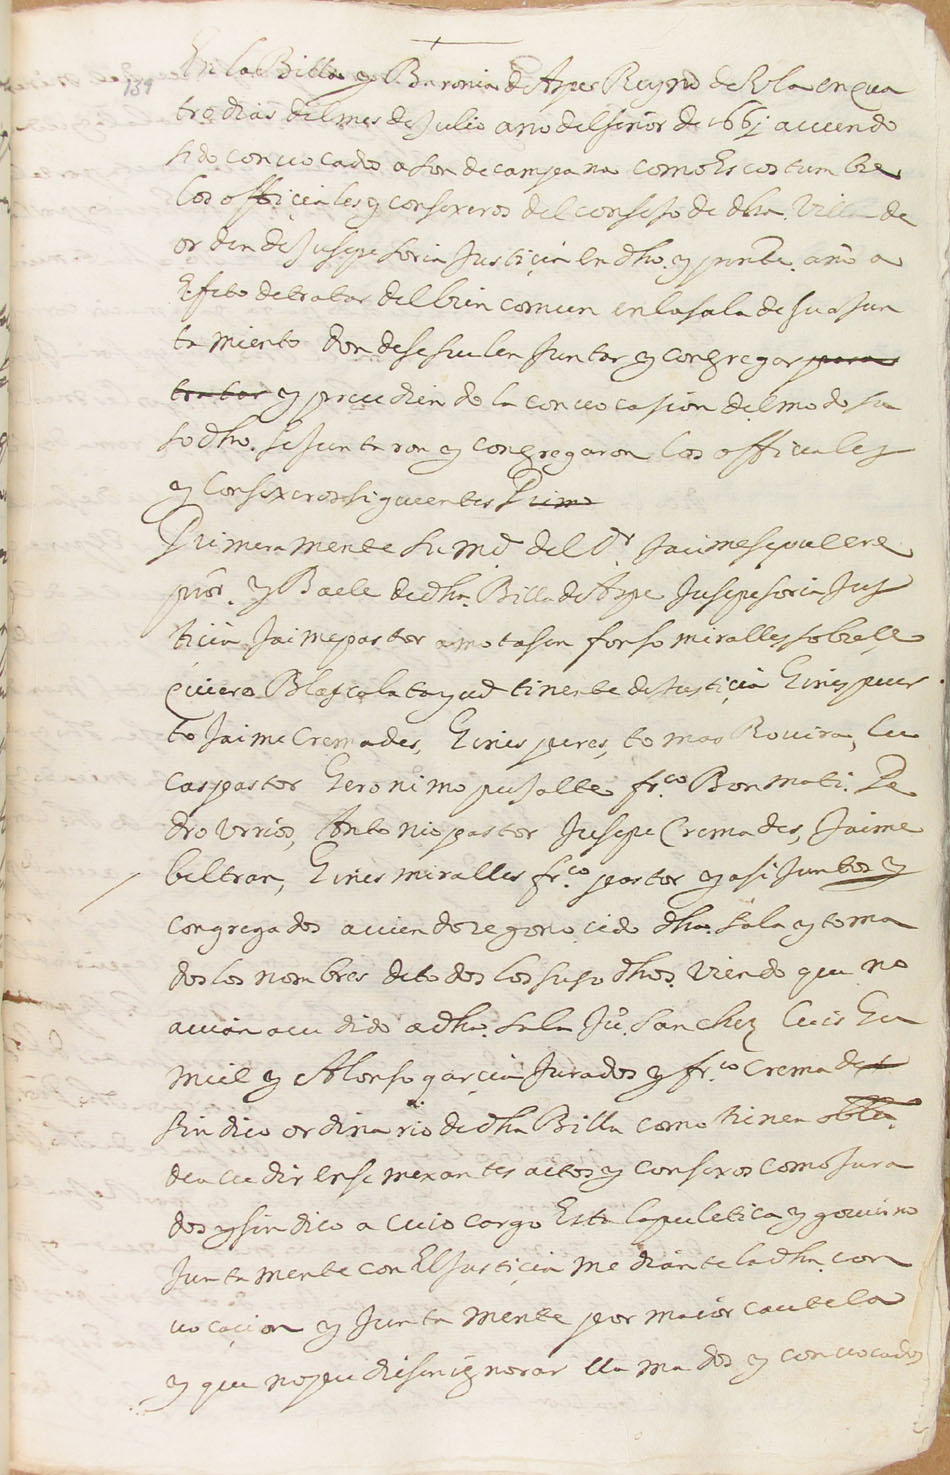 139
En la Billa y Baronia de Aspe Reyno de Vla en qua
tro dias del mes de Julio año del señor de 1661 auiendo
sido conuocados a son de campana como Es costumbre
los officiales y consexeros del consejo de dha Villa de
orden de Jusepe soria Justiçia en dho. y pnte. año a
Efeto de tratar del bien comun en la sala de su ajun
tamiento donde se suelen Juntar y congregar para
tratar y preçediendo la conuocasion del modo su
so dho. se juntaron y congregaron los officiales
y Consexeros siguientes Prime
Primeramente su md. del Dr Jaime sepulcre
pror. y Baele de dha. Billa de Aspe Jusepe soria Jus
tiçia Jaime pastor amotasen fonso miralles sobrese
quiero Blas calatayud tinente de Justiçia Gines puer
to Jaime Cremades, Gines peres, tomas Rouira, Lu
cas pastor Geronimo pujalte frco. Bonmati. Pe
dro Vrrios, Antonio pastor Jusepe Cremades, Jaime
beltran, Gines miralles frco pastor y asi Juntos y
congregados auiendo regonoçido dha. sala y toma
dos los nombres de todos los suso dhos. viendo que no
auian acudido a dha. sala Ju. Sanchez Luis Gu
miel y Alonso garcia Jurados y frco Cremades
sindico ordinario de dha Billa como tienen obliga.
de acudir en semexantes actos y consexos como Jura
dos y sindico a cuio cargo Esta la puletica y gouierno
Juntamente con El Justiçia mediante la dha. con
uocaçion y Juntamente por maior cautela
y que no pudiesen ignorar llamados y conuocados